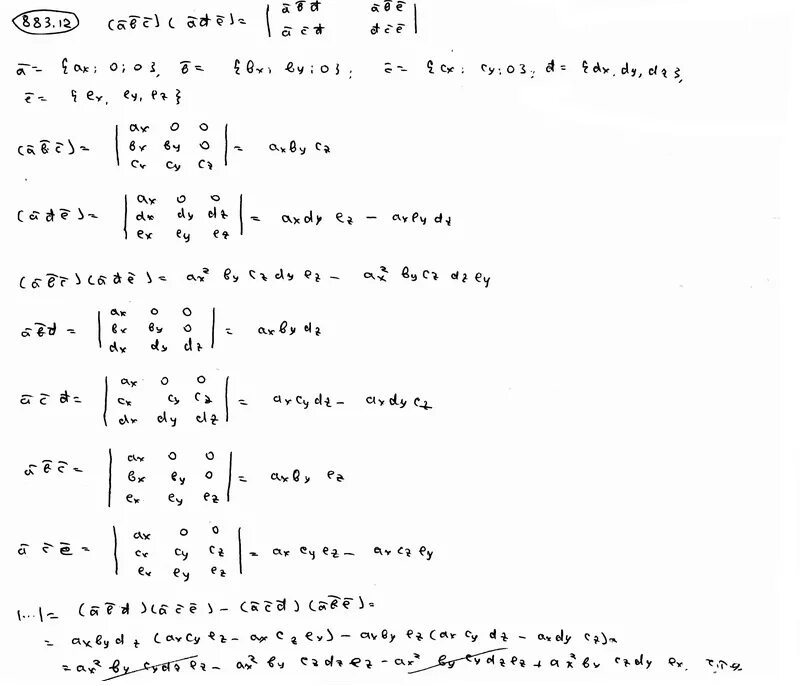 883.12 (ā b̄ c̄)(ā d̄ ē) = | ā b̄ d̄ ā b̄ ē |
| ā c̄ d̄ d̄ c̄ ē |
ā = {ax; 0; 0}, b̄ = {bx; by; 0}; c̄ = {cx; cy; 0}; d̄ = {dx, dy, dz},
c̄ = {ex, ey, ez}
(ā b̄ c̄) = | ax 0 0 |
| bx by 0 | = ax by cz
| cx cy cz |
(ā d̄ ē) = | ax 0 0 |
| dx dy dz | = ax dy ez − ax ey dz
| ex ey ez |
(ā b̄ c̄)(ā d̄ ē) = ax² by cz dy ez − ax² by cz dz ey
ā b̄ d̄ = | ax 0 0 |
| bx by 0 | = ax by dz
| dx dy dz |
ā c̄ d̄ = | ax 0 0 |
| cx cy cz | = ax cy dz − ax dy cz
| dx dy dz |
ā b̄ c̄ = | ax 0 0 |
| bx ey 0 | = ax by ez
| ex ey ez |
ā c̄ ē = | ax 0 0 |
| cx cy cz | = ax cy ez − ax cz ey
| ex ey ez |
|...| = (ā b̄ d̄)(ā c̄ ē) − (ā c̄ d̄)(ā b̄ ē) =
= ax by dz (ax cy ez − ax cz ey) − ax by ez (ax cy dz − ax dy cz) =
= ax² by cy dz ez − ax² by cz dz ez − ax² by cy dz ez + ax² by cz dy ex.